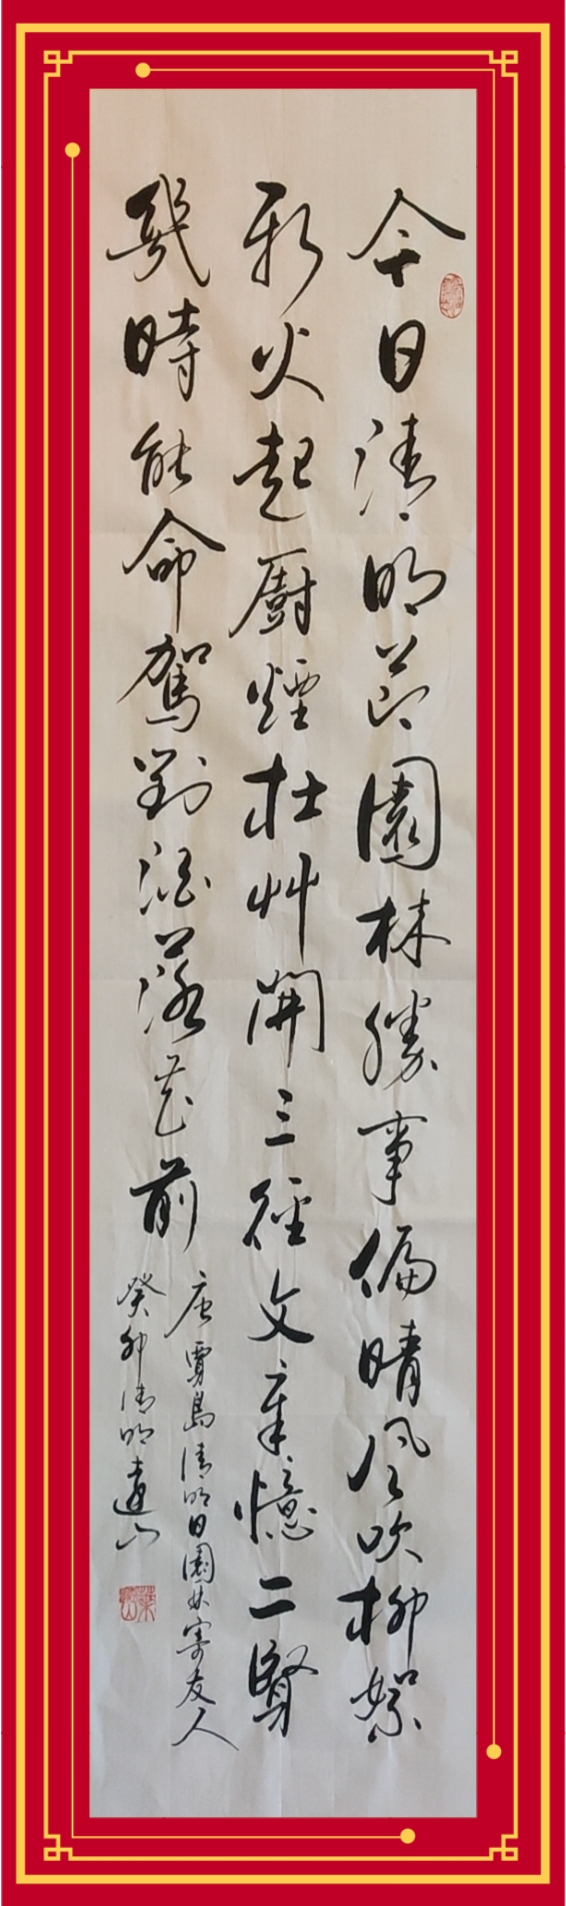 今日清明節園林勝事偏晴風吹柳絮
新火起厨煙杜艸開三徑文章憶二賢
幾時能命駕對酒落花前
唐賈島清明日園林寄友人
癸卯清明遠山